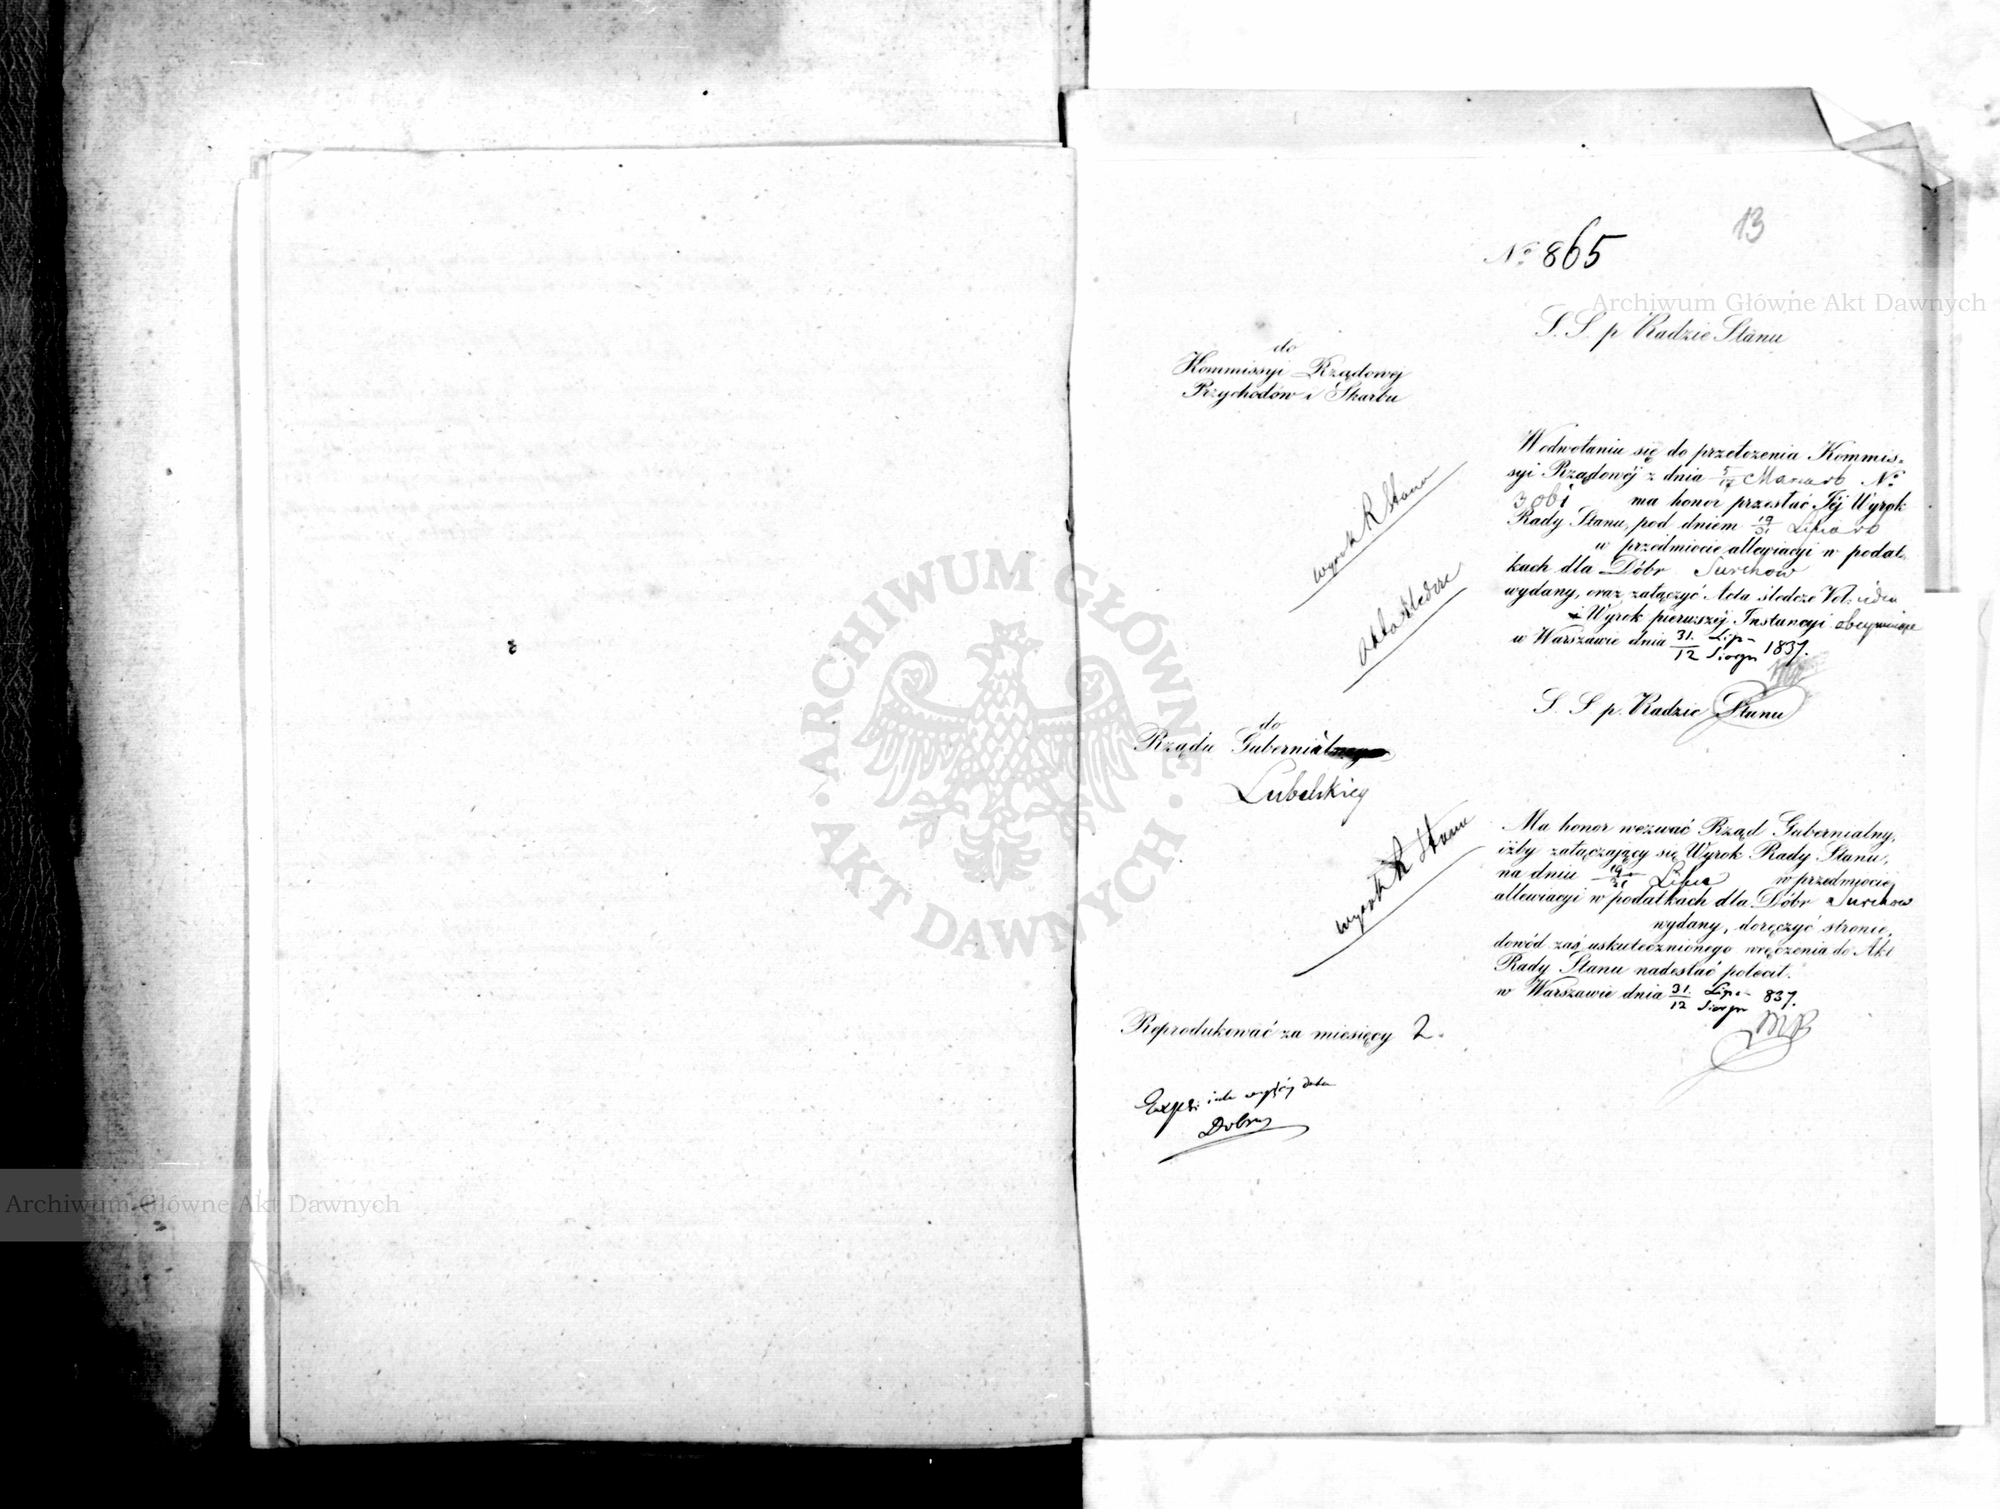 13
Nº 865
Archiwum Główne Akt Dawnych
S. S. p. Radzie Stanu
do
Kommissyi Rządowej
Przychodów i Skarbu
W odwołaniu się do przełożenia Kommis=
syi Rządowéj z dnia 5/17 Marca rb Nº
3061 ma honor przesłać Jéj Wyrok
Rady Stanu, pod dniem 19/31 Lipca rb
w przedmiocie allewiacyi w podat=
kach dla Dóbr Surchow
wydany, oraz załączyć Acta śledcze Vol:
i Wyrok pierwszéj Instancyi obejmujące
w Warszawie dnia 31. Lip/12 Sierpn 1837.
Wyrok R Stanu
Akta śledcze
S. S p. Radzie Stanu
do
Rządu Gubernialnego
Lubelskieg
Ma honor wezwać Rząd Gubernialny,
iżby załączający się Wyrok Rady Stanu,
na dniu 19/31 Lipca w przedmiocie
allewiacyi w podatkach dla Dóbr Surchow
wydany, doręczyć stronie,
dowód zaś uskutecznionego wręczenia do Akt
Rady Stanu nadesłać polecił.
w Warszawie dnia 31. Lip/12 Sierpn 837.
Wyrok R Stanu
Reprodukować za miesięcy 2.
ARCHIWUM GŁÓWNE AKT DAWNYCH
Archiwum Główne Akt Dawnych